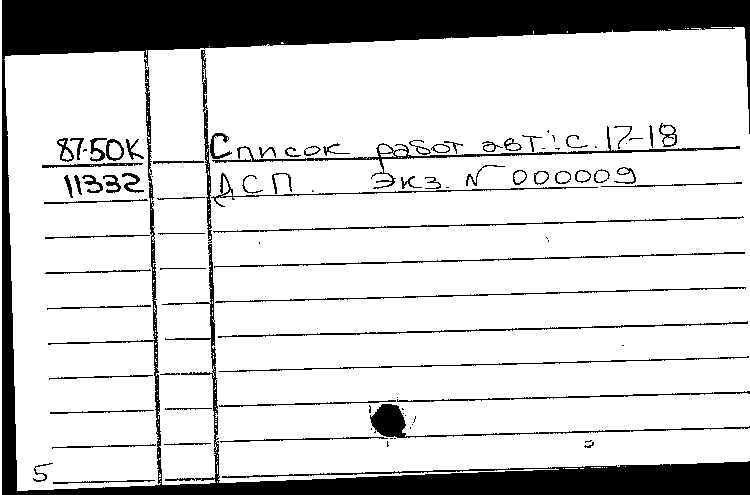 87-50К Список работ авт.: с. 17-18
11332 ДСП. Экз. № 000009
5